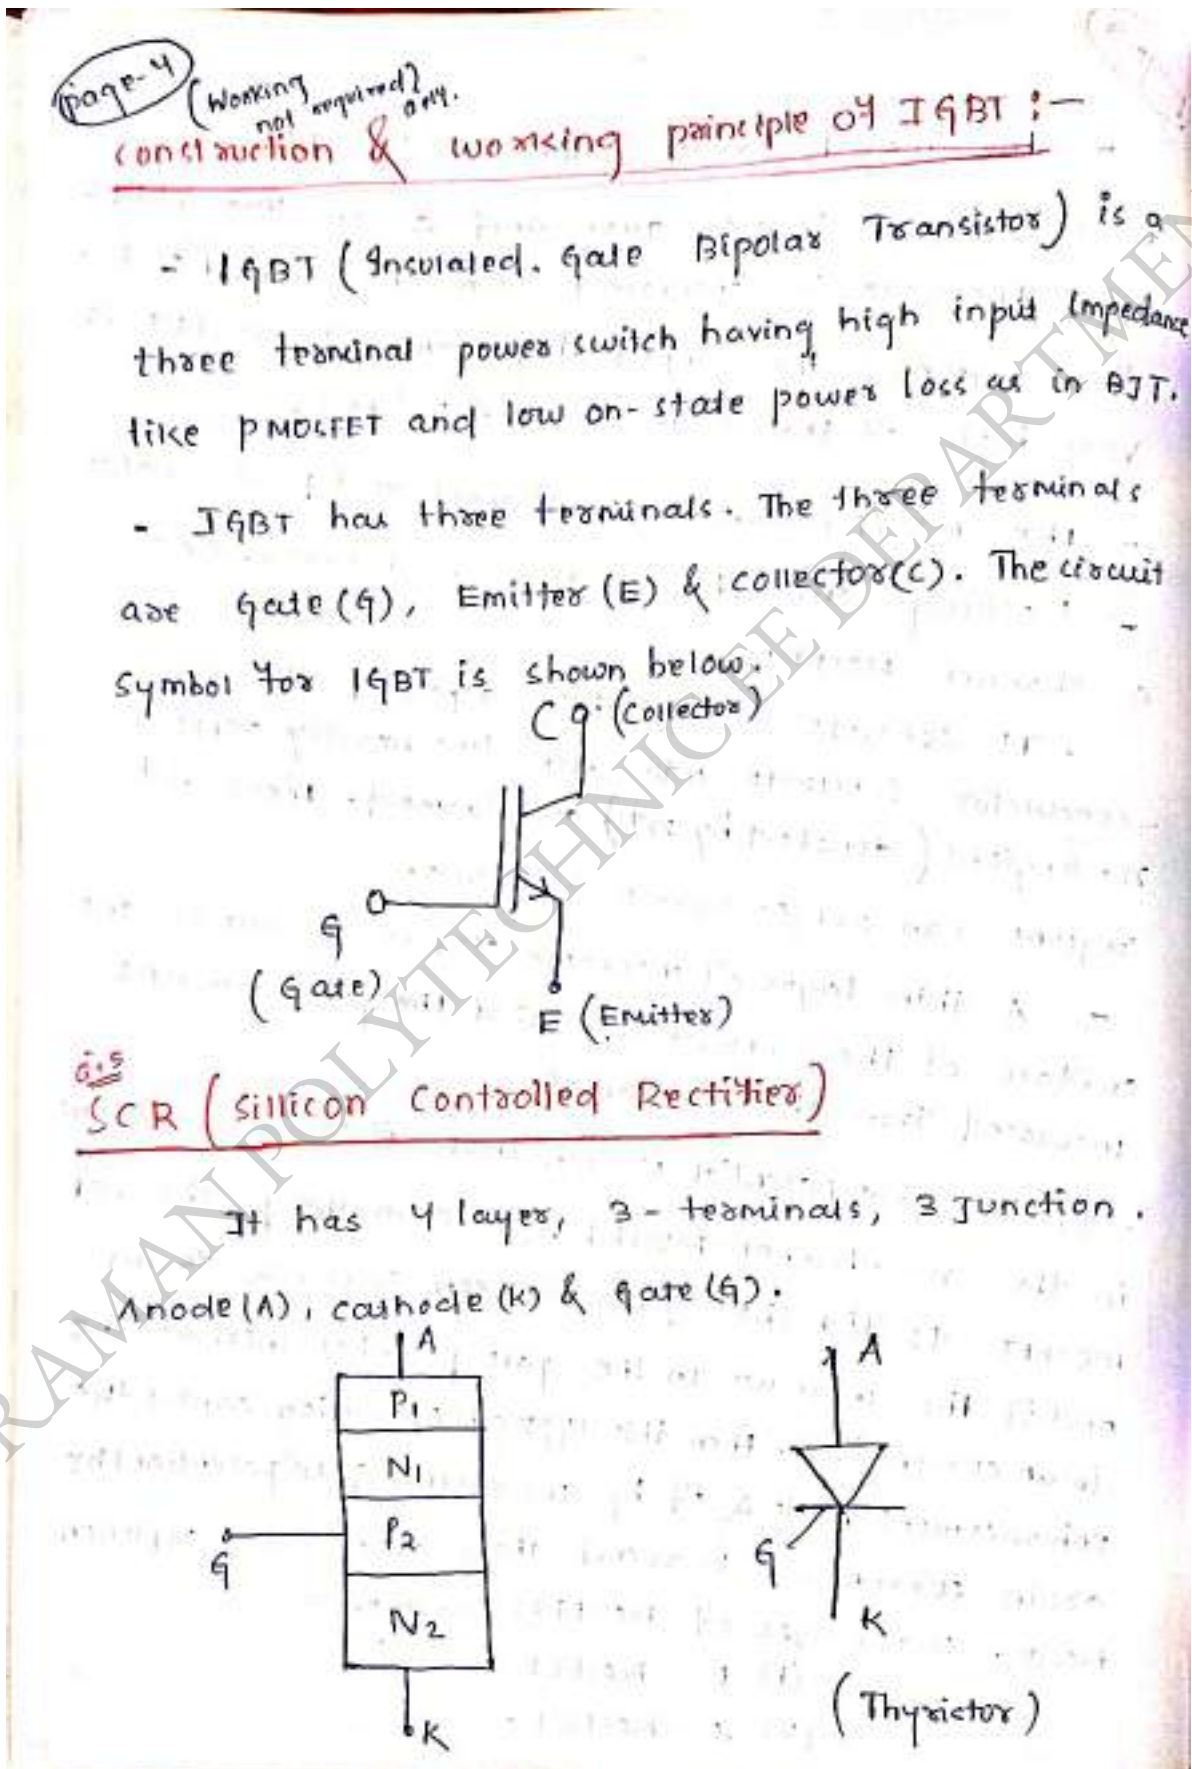 page-4
(Working
not required)
only.
construction & working principle of IGBT :-
- IGBT (Insulated. Gate Bipolar Transistor) is a
three terminal power switch having high input impedance
like PMOSFET and low on-state power loss as in BJT.
- IGBT has three terminals. The three terminals
are Gate(G), Emitter (E) & collector(C). The circuit
symbol for IGBT is shown below.
C (Collector)
G
(Gate)
E (Emitter)
G.5
SCR (Sillicon Controlled Rectifier)
It has 4 layer, 3-terminals, 3 Junction.
Anode(A), cathode (K) & Gate (G).
A
P1
N1
P2
G
N2
K
A
G
K
(Thyristor)
RAMAN POLYTECHNIC EE DEPARTMEN